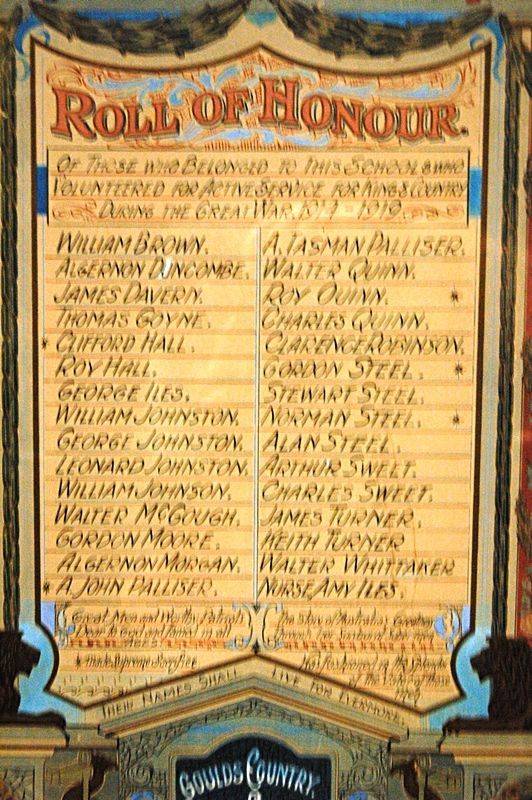 ROLL OF HONOUR.
OF THOSE WHO BELONGED TO THIS SCHOOL & WHO
VOLUNTEERED FOR ACTIVE SERVICE FOR KING & COUNTRY
DURING THE GREAT WAR. 1914 - 1919.
WILLIAM BROWN.
ALGERNON DUNCOMBE.
JAMES DAVERN.
THOMAS COYNE.
* CLIFFORD HALL.
ROY HALL.
GEORGE ILES.
WILLIAM JOHNSTON.
GEORGE JOHNSTON.
LEONARD JOHNSTON.
WILLIAM JOHNSON.
WALTER MCGOUGH.
GORDON MOORE.
ALGERNON MORGAN.
* A. JOHN PALLISER.
A. TASMAN PALLISER.
WALTER QUINN.
ROY QUINN. *
CHARLES QUINN.
CLARENCE ROBINSON.
GORDON STEEL. *
STEWART STEEL.
NORMAN STEEL. *
ALAN STEEL.
ARTHUR SWEET.
CHARLES SWEET.
JAMES TURNER.
KEITH TURNER
WALTER WHITTAKER
NURSE AMY ILES.
Great Men and Worthy Patriots
Dear to God and famed in all
AGES
* made Supreme Sacrifice
The Story of Australia's
of the
THEIR NAMES SHALL LIVE FOR EVERMORE.
GOULDS COUNTRY.